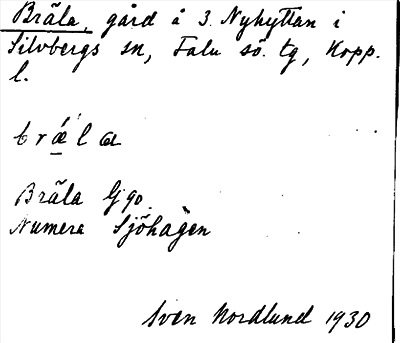 Bräla, gård å 3 Nyhyttan i
Silvbergs sn, Falu sö. tg, Kopp.
l.
brǽla
Bräla G 90.
Numera Sjöhagen
Sven Nordlund 1930